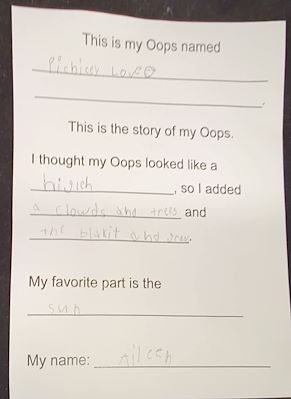 This is my Oops named
Pichisey Love
This is the story of my Oops.
I thought my Oops looked like a
hirich, so I added
a clowds and trees and
the blakit and
My favorite part is the
sun
My name: Aileen